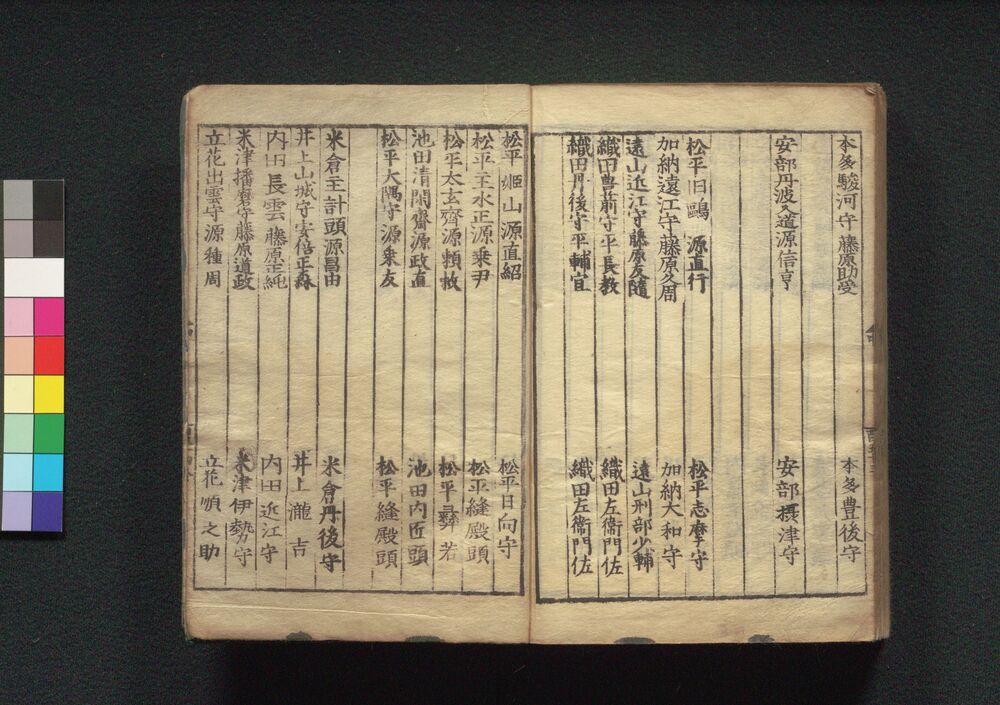 本多駿河守藤原助受　本多豊後守
安部丹波入道源信亨　安部摂津守
松平旧鷗　源直行　松平志摩守
加納遠江守藤原久周　加納大和守
遠山近江守藤原友随　遠山刑部少輔
織田豊前守平長教　織田左衞門佐
織田丹後守平輔宜　織田左衞門佐
松平姫山源直紹　松平日向守
松平主水正源乗尹　松平縫殿頭
松平太玄齋源頼救　松平彜若
池田清閑齋源政直　池田内匠頭
松平大隅守源乗友　松平縫殿頭
米倉主計頭源昌由　米倉丹後守
井上山城守安倍正森　井上瀧吉
内田長雲藤原正純　内田近江守
米津播磨守藤原通政　米津伊勢守
立花出雲守源種周　立花順之助